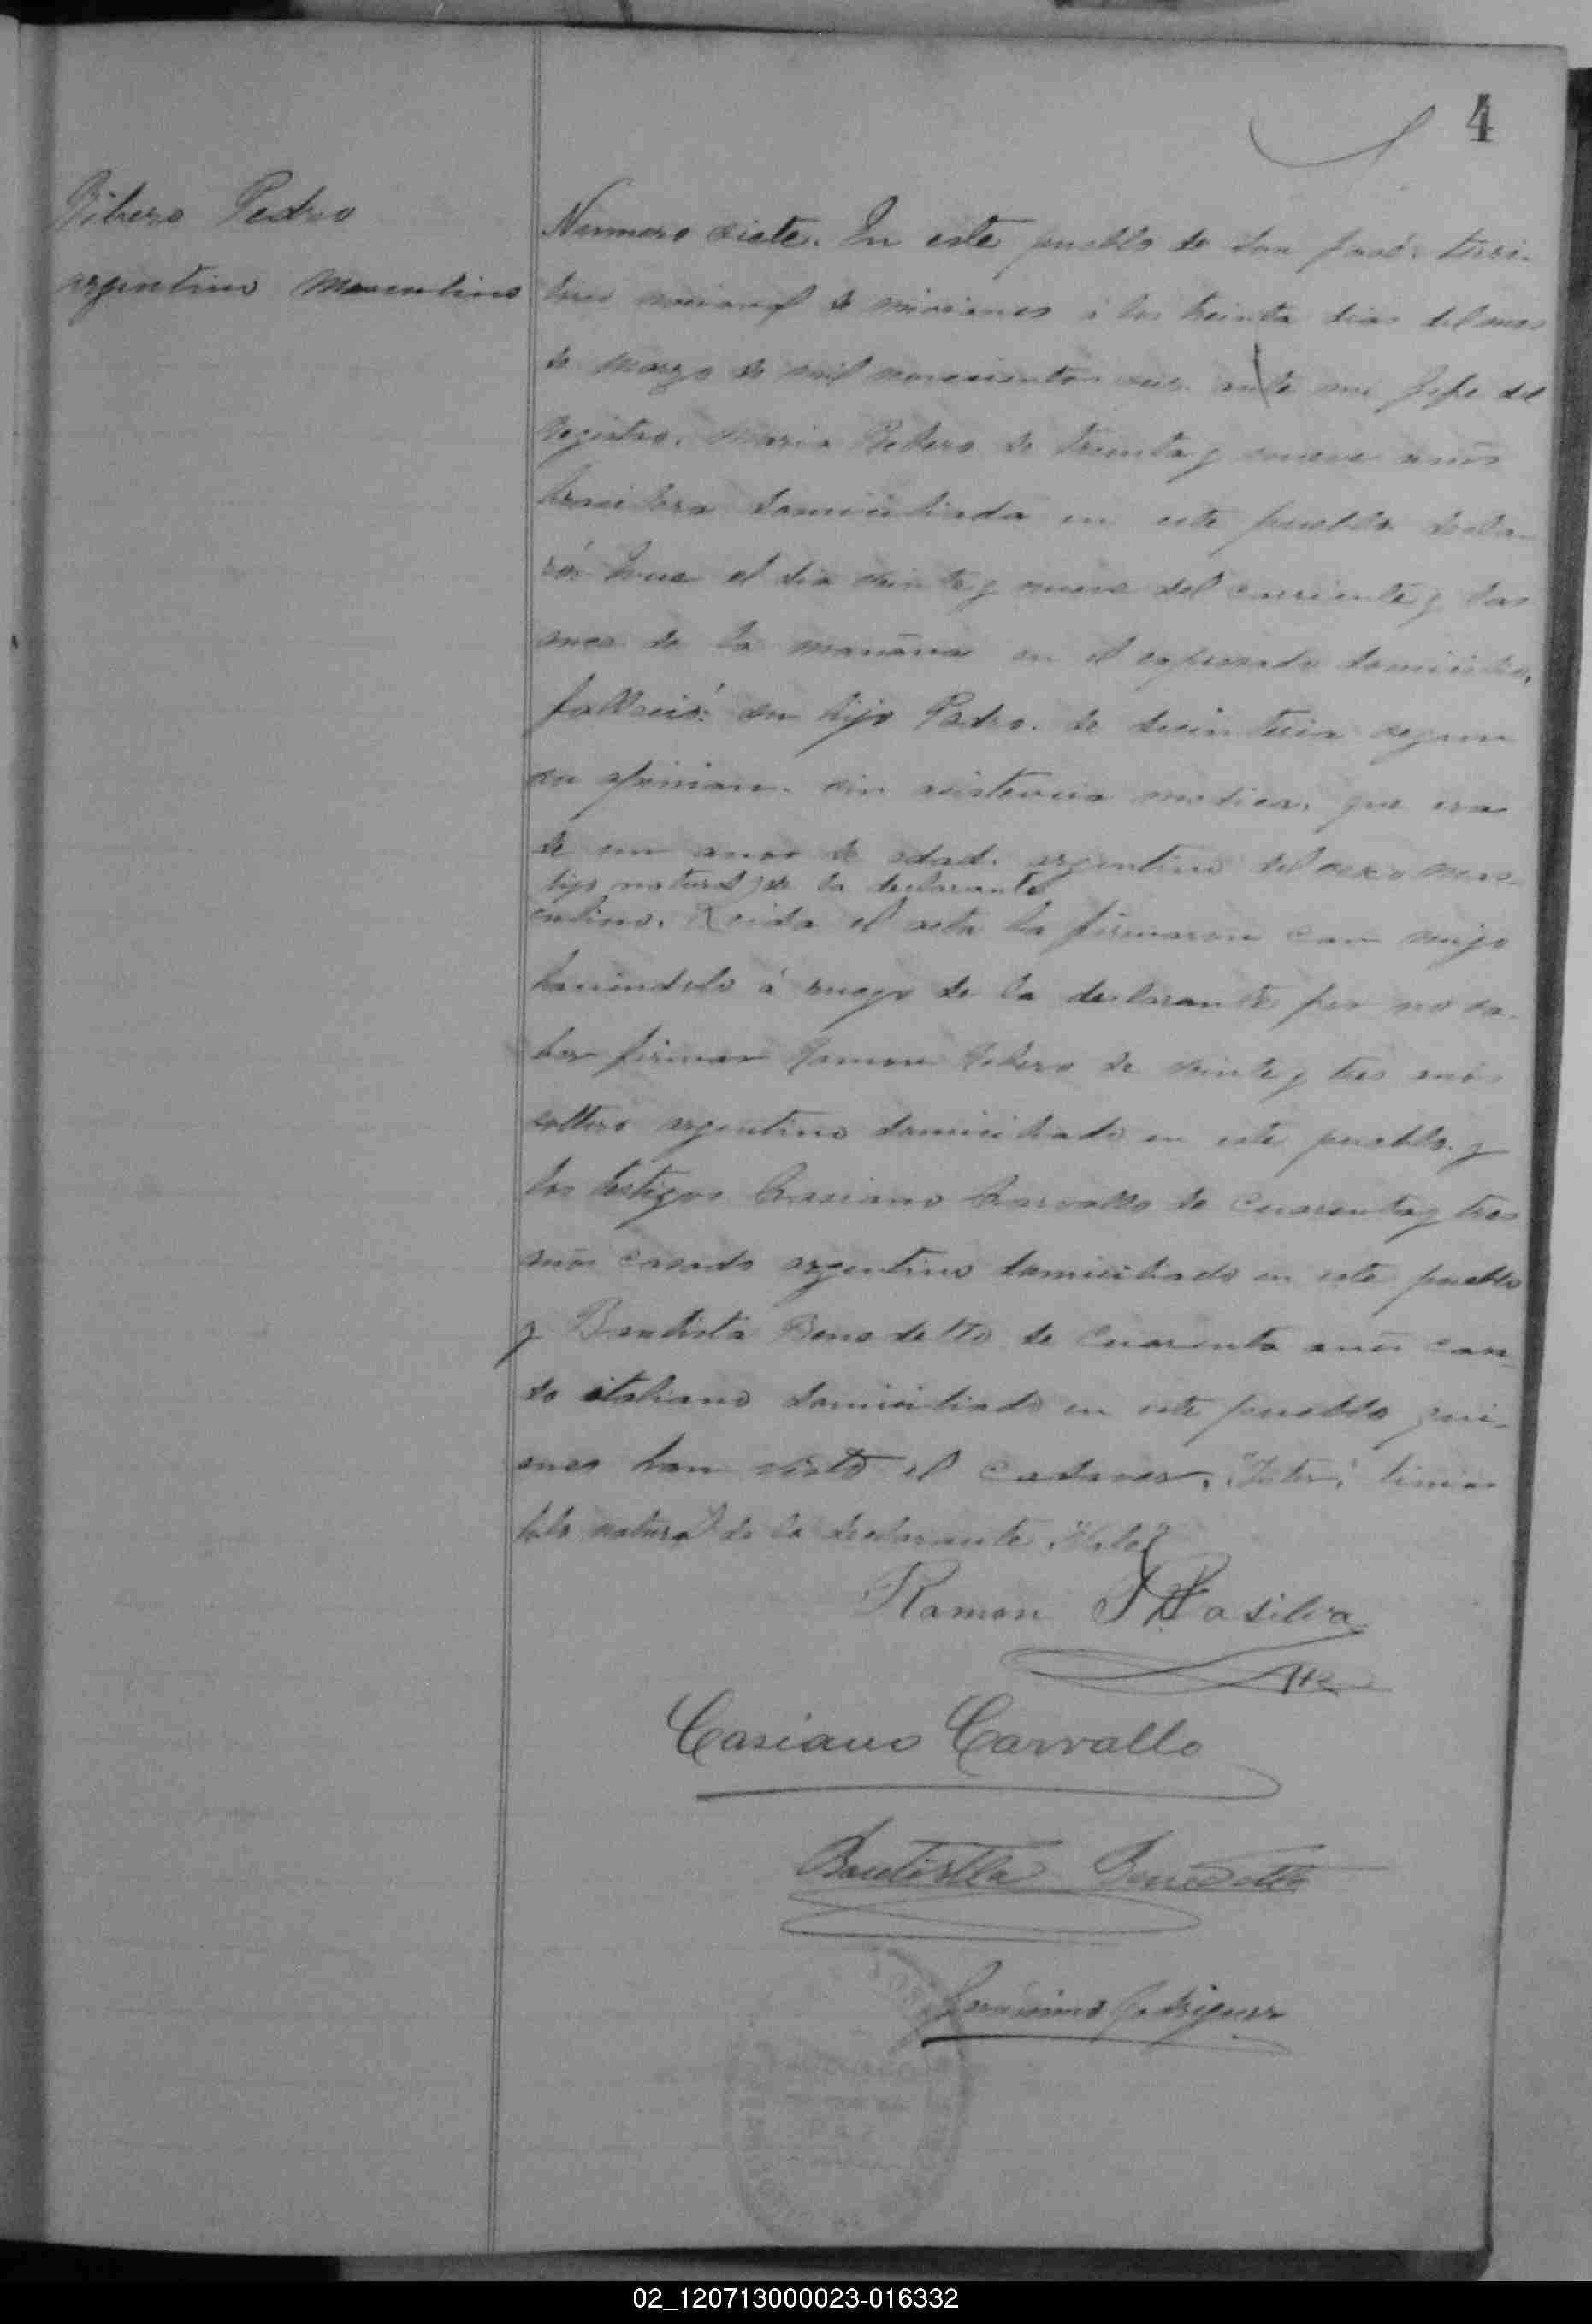 4
Ribero Pedro
argentino masculino
Nummero siete. En este pueblo de San José. terri-
torio nacional de misiones á los treinta dias del mes
de marzo de mil novecientos seis. ante mi Jefe del
Registro. Maria Ribero de treinta y nueve años
brasilera domiciliada en este pueblo decla-
ró: Que el dia veinte y nueve del corriente y las
once de la mañana en el expresado domicilio,
falleció: su hijo Pedro. de disinteria segun
su opinion. sin asistencia medica. que era
de un años de edad. argentino del sexo mas-
hijo natural de la declarante
culino. Leida el acta la firmaron con migo
haciendolo á ruego de la declarante por no sa-
ber firmar Ramon Ribero de veinte y tres años
soltero argentino domiciliado en este pueblo y
los testigos Casiano Carvallo de cuarenta y tres
años casado argentino domiciliado en este pueblo
y Bautista Benedetto de cuarenta años casa-
do italiano domiciliado en este pueblo qui-
enes han visto el cadaver.
natural de la declarante "Vale"
Ramon Dasilva
Casiano Carvallo
Bautistta Benedetto
Rodriguez
02_120713000023-016332